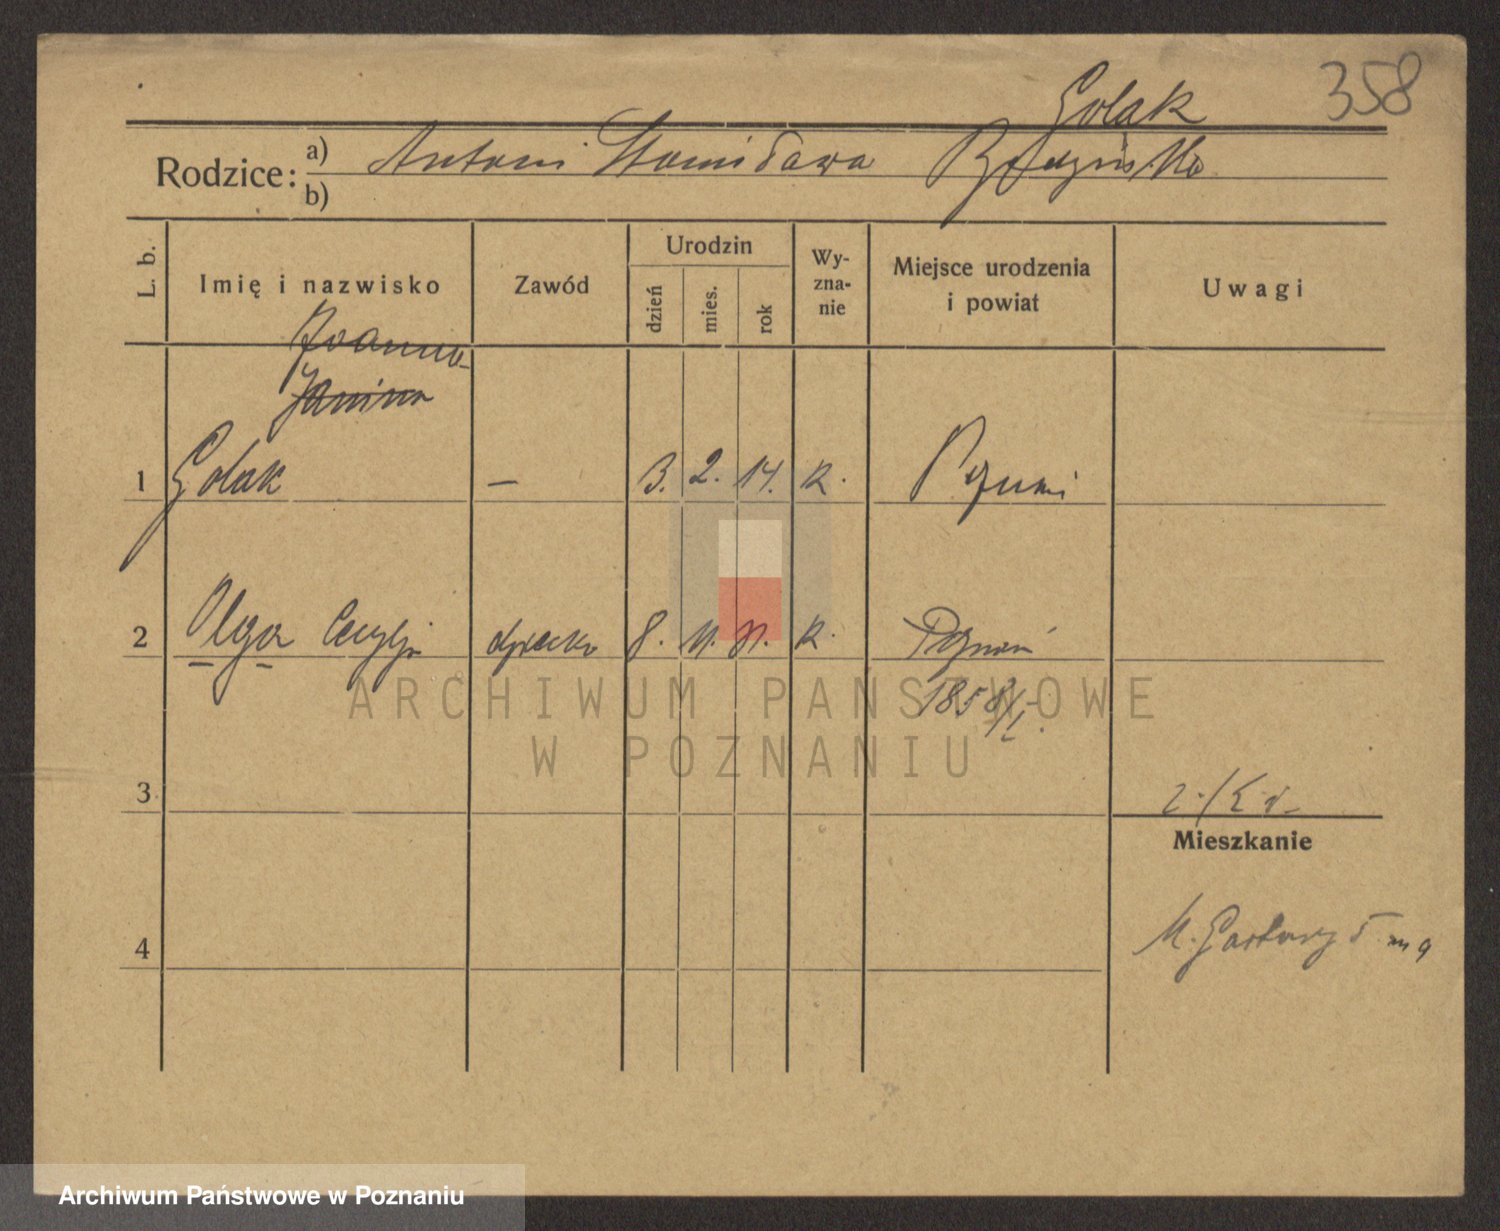 Golak 358
Rodzice: a) Antoni Stanisława
b)
L. b. Imię i nazwisko Zawód Urodzin dzień mies. rok Wy-zna-nie Miejsce urodzenia i powiat Uwagi
Joanna
Janina
1 Golak — 3. 2. 14. k.
2 Olga Cecylja dziecko 8. 11. 31. k. Poznań
1858/I.
3
Mieszkanie
4 M. Garbary 5 m 9
ARCHIWUM PAŃSTWOWE
W POZNANIU
Archiwum Państwowe w Poznaniu